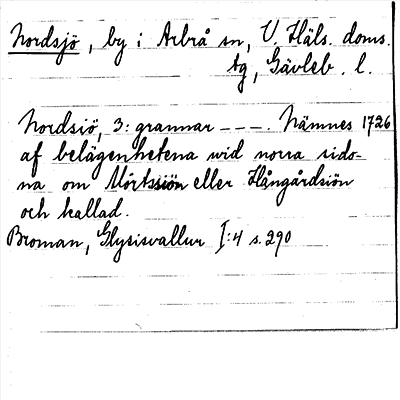 Nordsjö, by i Arbrå sn, V. Häls. doms.
tg, Gävleb. l.
Nordsiö, 3: grannar ---. Nämnes 1726
af belägenhetena wid norra sido-
na om Mörtssiön eller Hångårdsiön
och kallad.
Broman, Glysisvallur I:4 s. 290